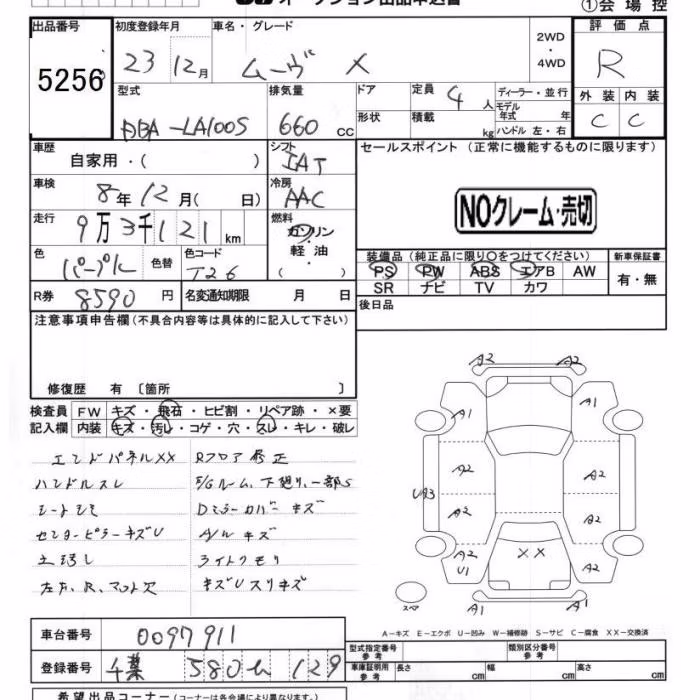 オークション出品申込書 ①会場控
出品番号 初度登録年月 車名・グレード 評価点
5256 23 12月 ムーヴ X 2WD・4WD R
型式 排気量 ドア 定員 4人 ディーラー・並行
形状 積載 kg モデル年式 年 外装 内装
DBA-LA100S 660 cc ハンドル 左・右 C C
車歴 自家用・( ) シフト IAT セールスポイント (正常に機能するものに限ります)
車検 8年12月( 日) 冷房 AAC NOクレーム・売切
走行 9万3千121km 燃料 ガソリン・軽油( )
色 パープル 色替 色コード T26 装備品(純正品に限り○をつけてください) 新車保証書
PS PW ABS エアB AW 有・無
SR ナビ TV カワ
R券 8590円 名変通知期限 月 日 後日品
注意事項申告欄(不具合内容等は具体的に記入して下さい)
修復歴 有 〔箇所 〕
検査員 FW キズ・飛石・ヒビ割・リペア跡・×要
記入欄 内装 キズ・汚レ・コゲ・穴・スレ・キレ・破レ
エンドパネルXX Rフロア修正
ハンドルスレ E/Gルーム、下廻り、一部S
シートシミ Dミラーカバーキズ
センターピラーキズU A/Wキズ
ライトクモリ
キズUスリキズ
A2 A2
A1 A1
A2 A2
UA3
A2 A2
A2 U1 XX A2
スペア A1 A1
A-キズ E-エクボ U-凹み W-補修跡 S-サビ C-腐食 XX-交換済
車台番号 0097911
型式指定番号 参考 類別区分番号 参考
登録番号 千葉 580 129
車庫証明用 参考 長さ cm 幅 cm 高さ cm
希望出品コーナー(コーナーは各会場により異なります。)